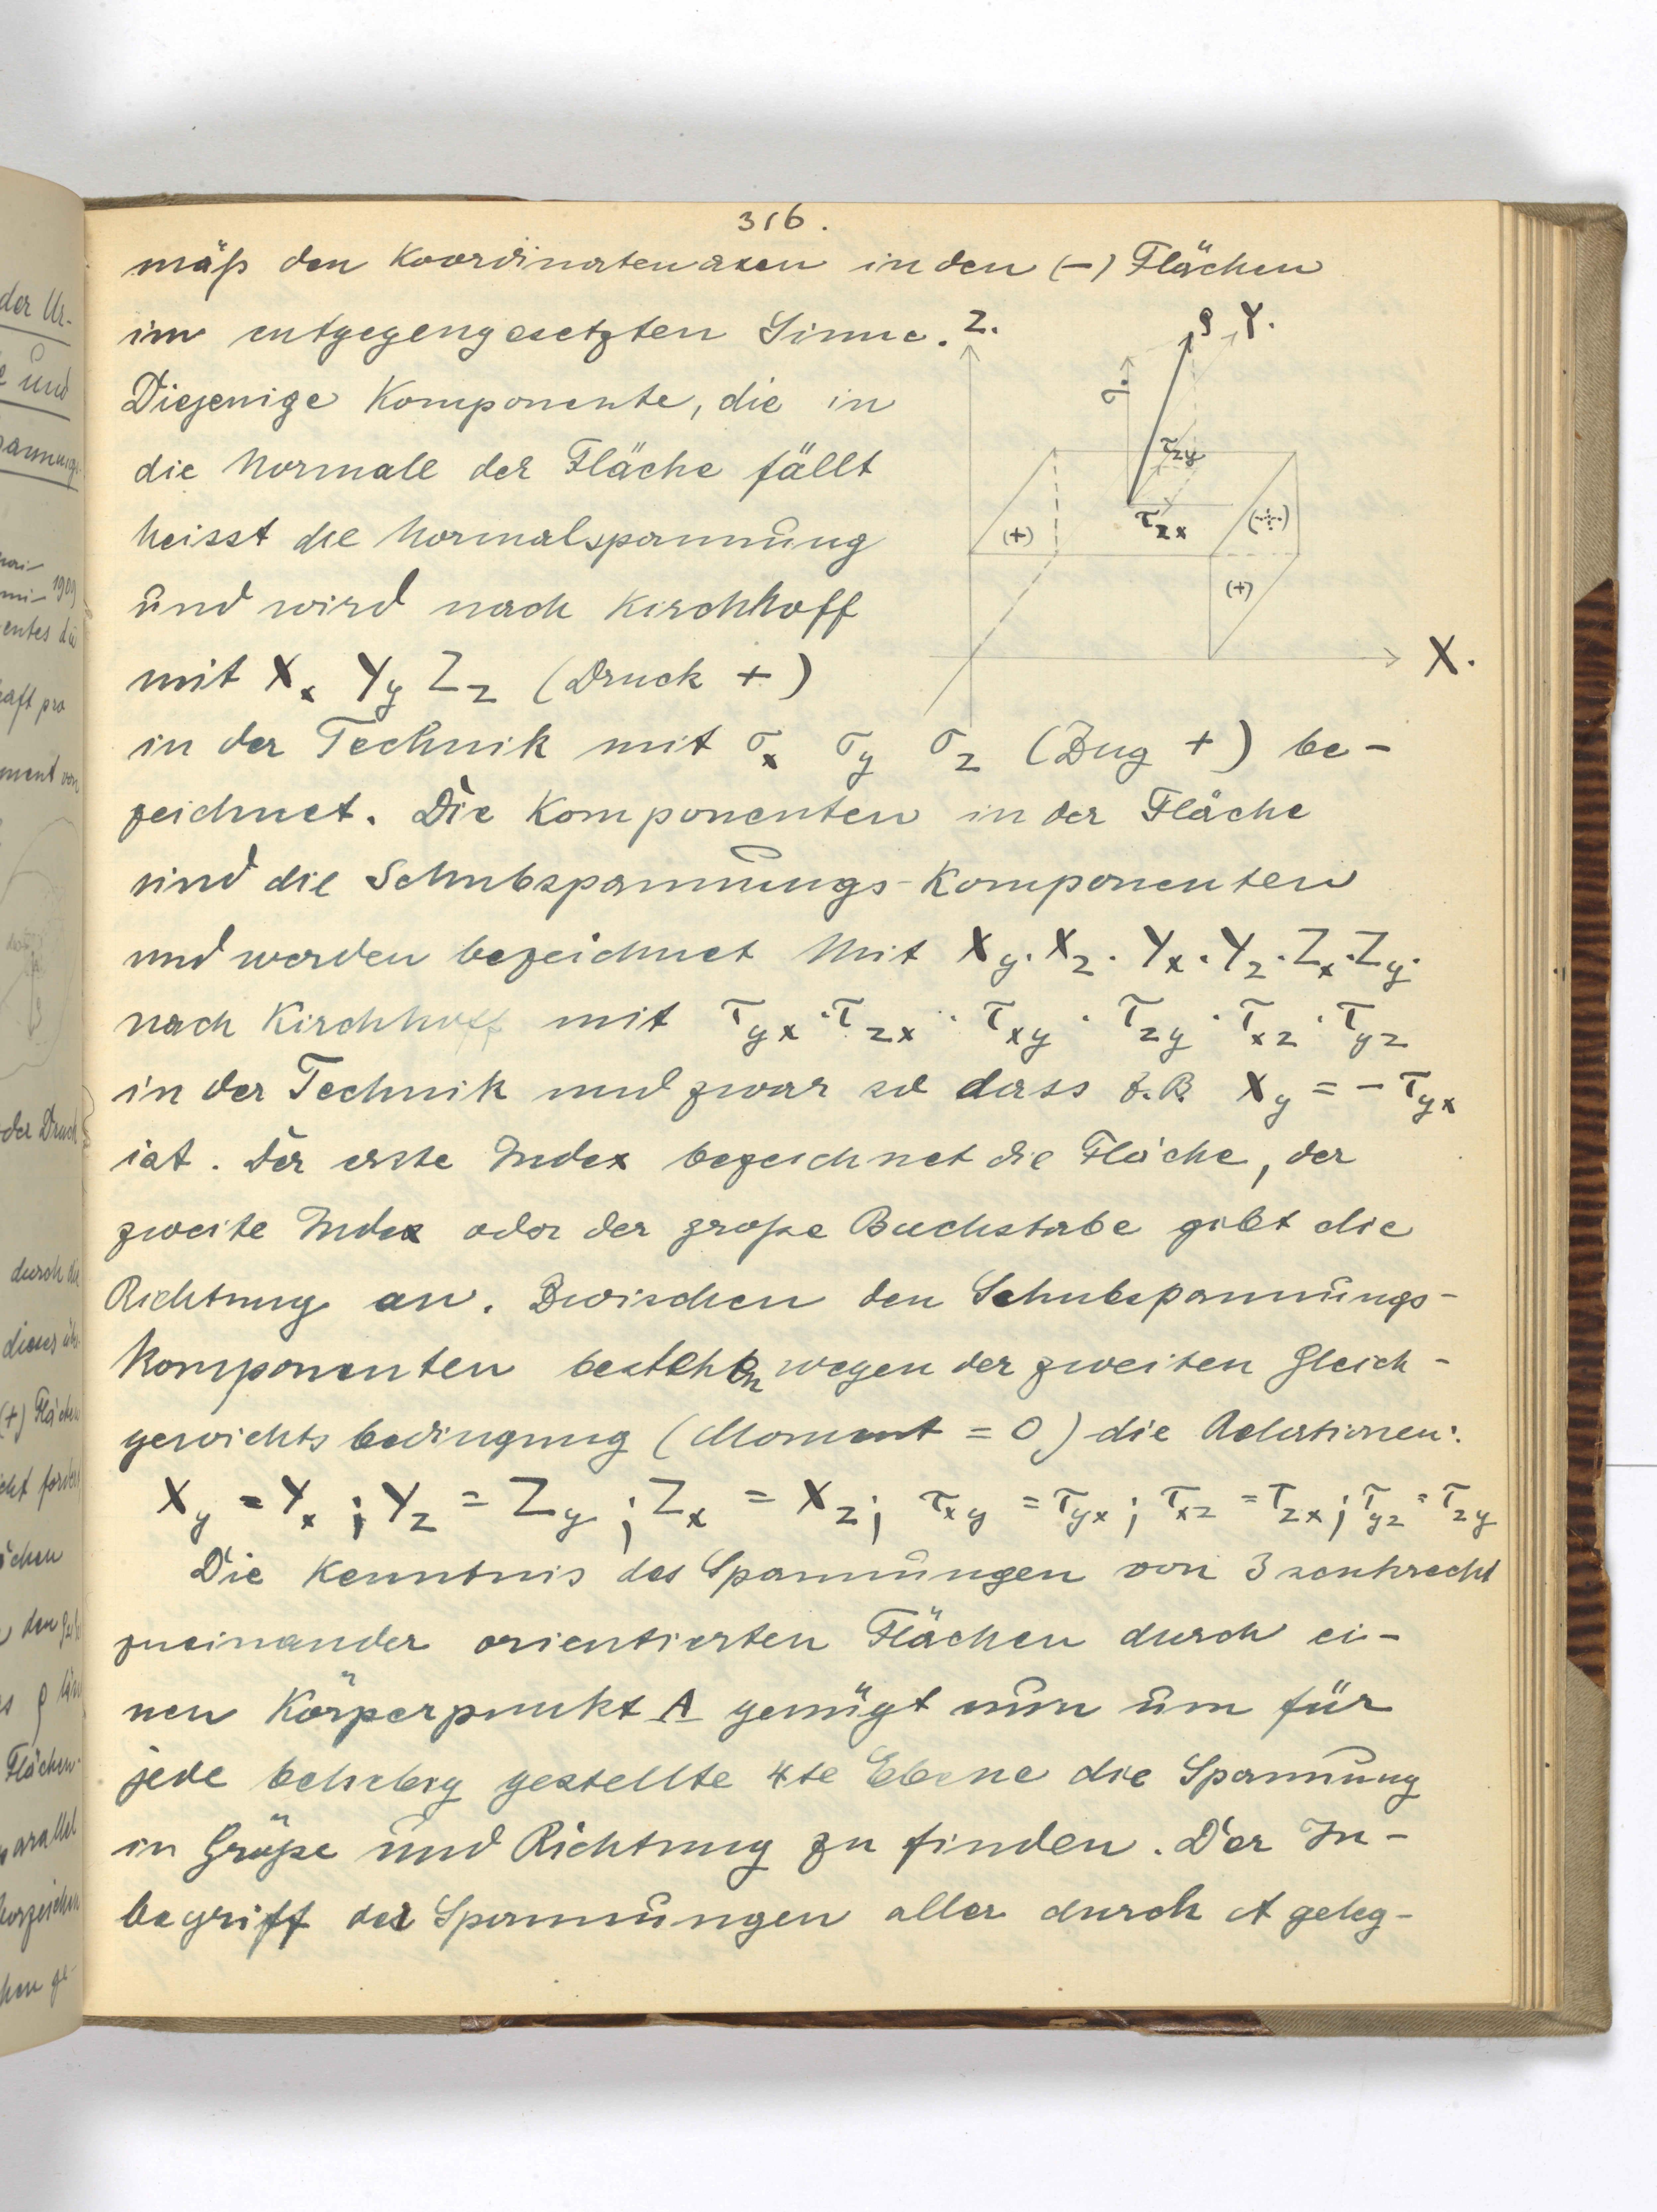 316.
mäß den Koordinatenaxen in den (–) Flächen
im entgegengesetzten Sinne.
Z.
ρ Y.
σ
τzy
τzx
(+)
(÷)
(+)
X.
Diejenige Komponente, die in
die Normale der Fläche fällt
heisst die Normalspannung
und wird nach Kirchhoff
mit Xx Yy Zz (Druck +)
in der Technik mit σx σy σz (Zug +) be-
zeichnet. Die Komponenten in der Fläche
sind die Schubspannungs-Komponenten
und werden bezeichnet mit Xy · Xz · Yx · Yz · Zx · Zy ·
nach Kirchhoff mit τyx · τzx · τxy · τzy · τxz · τyz
in der Technik und zwar so dass z.B. Xy = – τyx
ist. Der erste Index bezeichnet die Fläche, der
zweite Index oder der große Buchstabe gibt die
Richtung an. Zwischen den Schubspannungs-
komponenten bestehen wegen der zweiten Gleich-
gewichtsbedingung (Moment = 0) die Relationen:
Xy = Yx ; Yz = Zy ; Zx = Xz ; τxy = τyx ; τxz = τzx ; τyz = τzy
Die Kenntnis des Spannungen von 3 senkrecht
zueinander orientierten Flächen durch ei-
nen Körperpunkt A genügt nun um für
jede beliebig gestellte 4te Ebene die Spannung
in Größe und Richtung zu finden. Der In-
begriff der Spannungen aller durch A geleg-